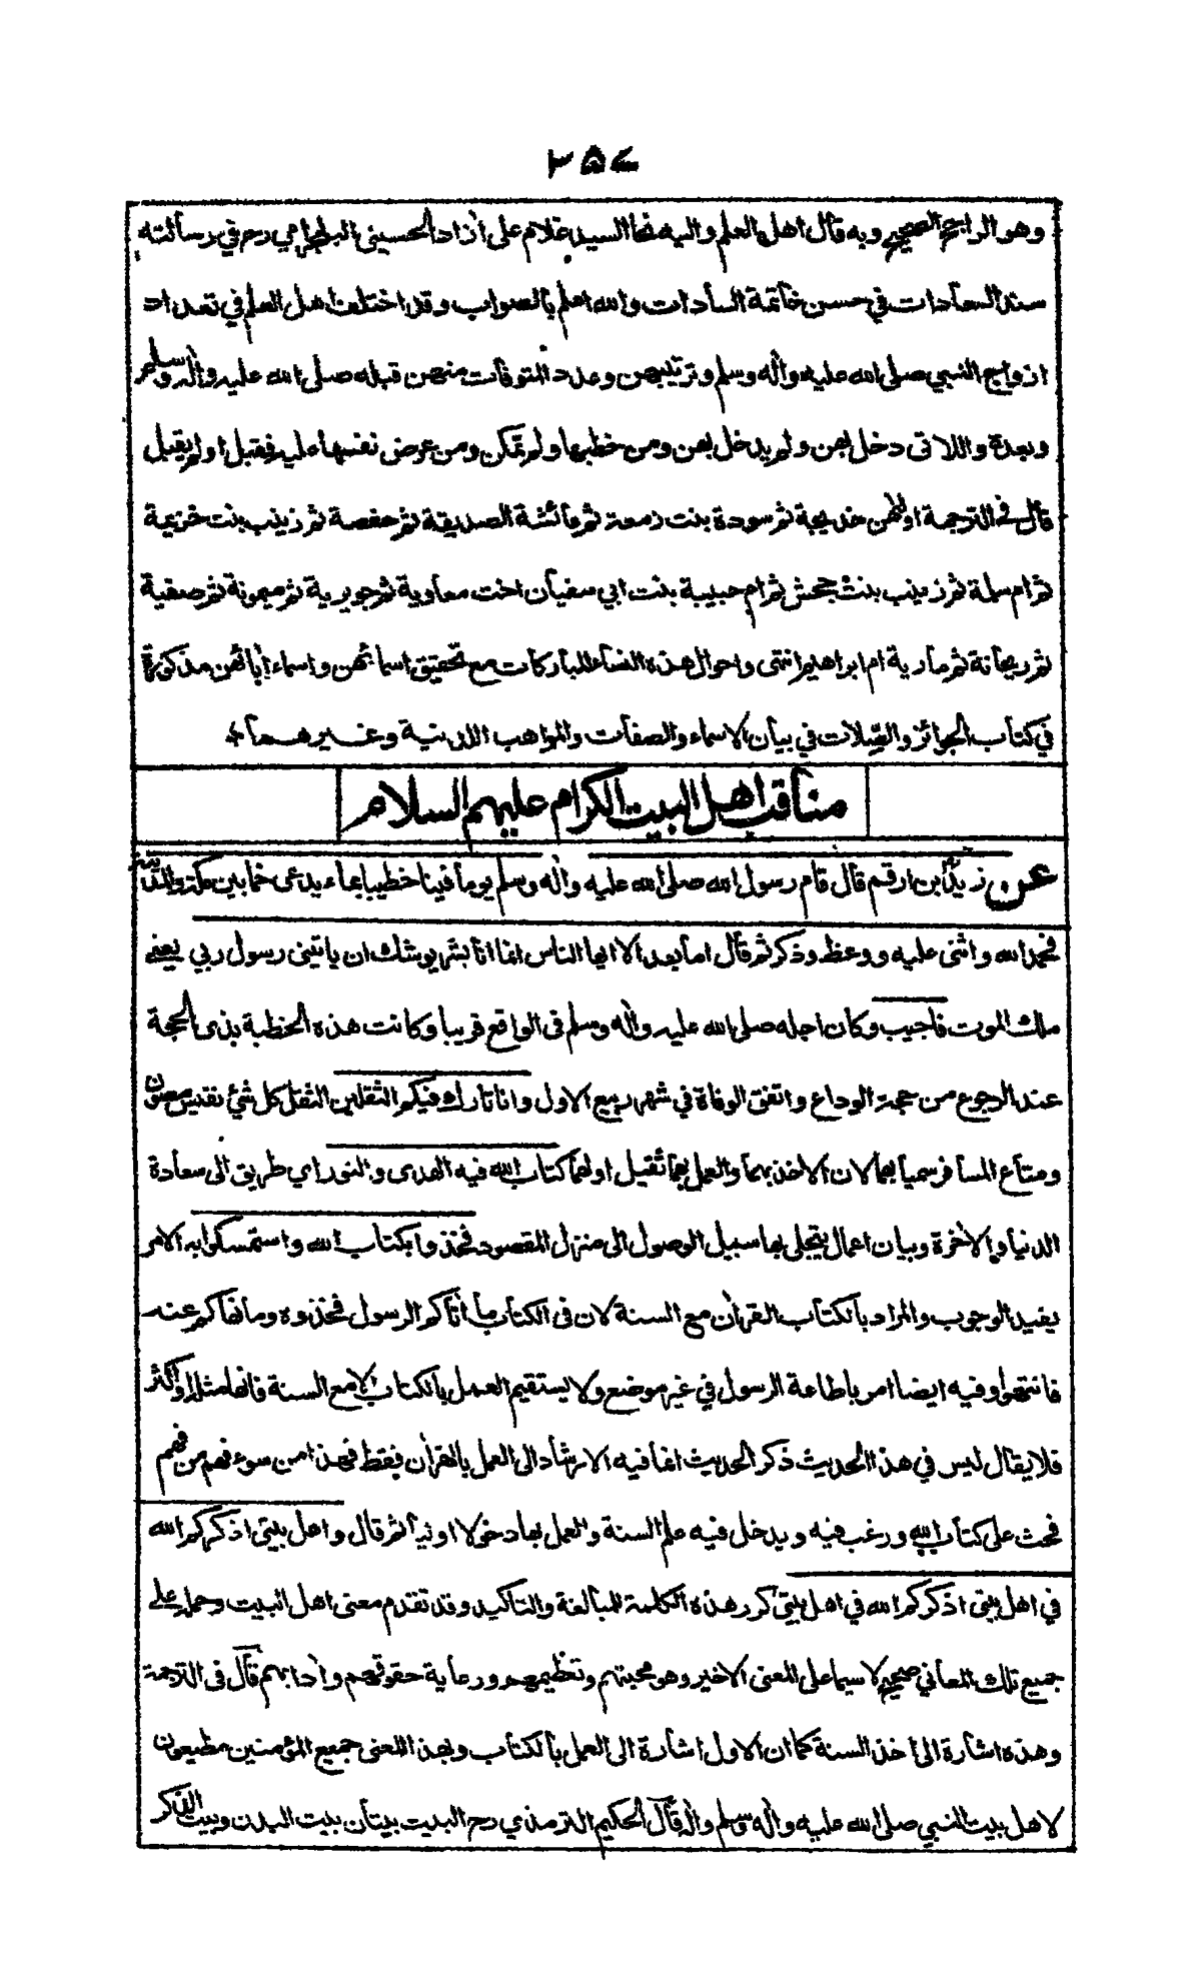 ٢٥٧
وهو الراجح الصحيح وبه قال اهل العلم واليه نحا السيد غلام على أزاد الحسينى البلجرامي رح في رسالته
سند السعادات في حسن خاتمة السادات والله اعلم بالصواب وقد اختلف اهل العلم في تعداد
ازواج النبي صلى الله عليه وأله وسلم وترتيبهن وعدد المتوفات منهن قبله صلى الله عليه وأله وسلم
وبعدة واللاتى دخل بهن ولم يدخل بهن ومن خطبها ولم تمكن ومن عرض نفسها عليه فقبل او لم يقبل
قال فى الترجمة اولهن خديجة ثم سودة بنت زمعة ثم عائشة الصديقة ثم حفصة ثم زينب بنت خزيمة
ثم ام سلمة ثم زينب بنت جحش ثم ام حبيبة بنت ابي سفيان اخت معاوية ثم جويرية ثم ميمونة ثم صفية
ثم ريحانة ثم مارية ام ابراهيم انتهى واحوال هذه النساء المباركات مع تحقيق اسمائهن واسماء أبائهن مذكورة
في كتاب الجوائز والصلات في بيان الاسماء والصفات والمواهب اللدنية وغيرهما
مناقب اهل البيت الكرام عليهم السلام
عن زيد بن ارقم قال قام رسول الله صلى الله عليه وأله وسلم يوما فينا خطيبا بماء يدعى خما بين مكة والمدينة
فحمد الله واثنى عليه ووعظ وذكر ثم قال اما بعد الا ايها الناس انما انا بشر يوشك ان ياتينى رسول ربي يعنى
ملك الموت فاجيب وكان اجله صلى الله عليه وأله وسلم فى الواقع قريبا وكانت هذه الخطبة بذى الحجة
عند الرجوع من حجة الوداع واتفق الوفاة في شهر ربيع الاول وانا تارك فيكم الثقلين الثقل كل شئ نفيس مصون
ومتاع المسافر سميا بهما لان الاخذ بهما والعمل بهما ثقيل اولهما كتاب الله فيه الهدى والنور اي طريق الى سعادة
الدنيا والأخرة وبيان اعمال يتجلى بها سبيل الوصول الى منزل المقصود فخذوا بكتاب الله واستمسكوا به الامر
يفيد الوجوب والمراد بالكتاب القرأن مع السنة لان فى الكتاب ما أتاكم الرسول فخذوه وما نهاكم عنه
فانتهوا وفيه ايضا امر باطاعة الرسول في غير موضع ولا يستقيم العمل بالكتاب الا مع السنة فانها مثله او اكثر
فلا يقال ليس في هذا الحديث ذكر الحديث انما فيه الارشاد الى العمل بالقرأن فقط فهذا من سوء فهم من فهم
فحث على كتاب الله ورغب فيه ويدخل فيه علم السنة والعمل بها دخولا اوليا ثم قال واهل بيتى اذكركم الله
في اهل بيتى اذكركم الله في اهل بيتى كرر هذه الكلمة للمبالغة والتاكيد وقد تقدم معنى اهل البيت وحمله على
جميع تلك المعاني صحيح لا سيما على المعنى الاخير وهو محبتهم وتعظيمهم ورعاية حقوقهم وأدابهم قال فى الترجمة
وهذه اشارة الى اخذ السنة كما ان الاول اشارة الى العمل بالكتاب وبهذ المعنى جميع المؤمنين مطيعون
لاهل بيت النبي صلى الله عليه وأله وسلم واله قال الحكيم الترمذي رح البيت بيتان بيت البدن وبيت الذكر